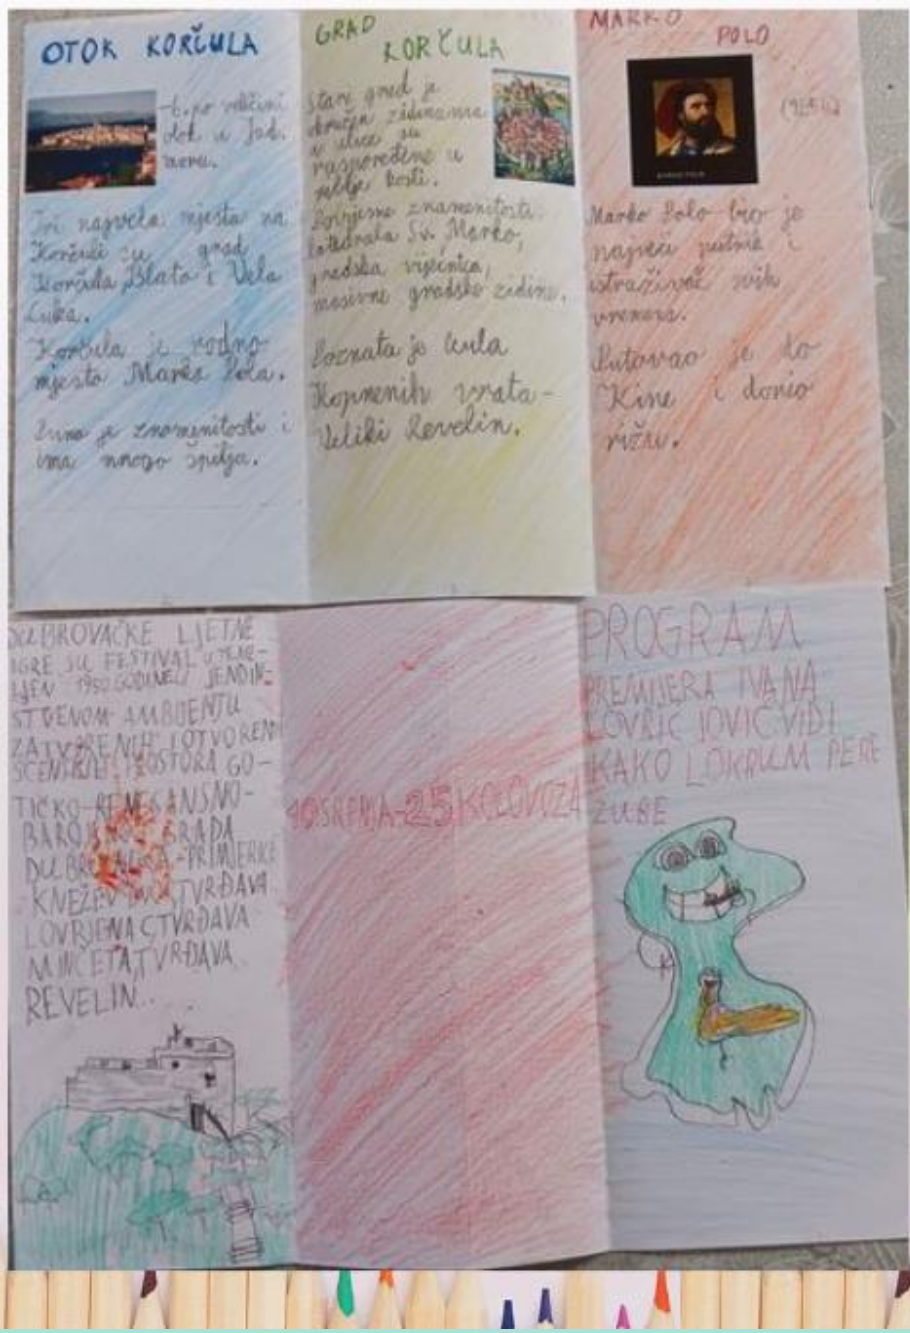 OTOK KORČULA
-6. po veličini
otok u Jad.
moru.
Tri najveća mjesta na
Korčuli su grad
Korčula, Blato i Vela
Luka.
Korčula je rodno
mjesto Marka Pola.
Puna je znamenitosti i
ima mnogo spilja.
GRAD
KORČULA
Stari grad je
okružen zidinama
a ulice su
raspoređene u
riblje kosti.
Povijesne znamenitosti:
katedrala Sv. Marko,
gradska vijećnica,
masivne gradske zidine.
Poznata je kula
Kopnenih vrata-
Veliki Revelin.
MARKO
POLO
Marko Polo bio je
najveći putnik i
istraživač svih
vremena.
Putovao je do
Kine i donio
rižu.
DUBROVAČKE LJETNE
IGRE SU FESTIVAL UTEME-
LJEN 1950 GODINE U JEDIN-
STVENOM AMBIJENTU
ZATVORENIH I OTVORENIH
PROSTORA GO-
TIČKO-RENESANSNO-
GRADA
DUBROVNIKA-PRIMJERICE
TVRĐAVA
LOVRJENAC TVRĐAVA
MINČETA, TVRĐAVA
REVELIN..
10. SRPNJA-25 KOLOVOZA
PROGRAM
PREMIJERA IVANA
LOVRIĆ JOVIĆ VIDI
KAKO LOKRUM PERE
ZUBE